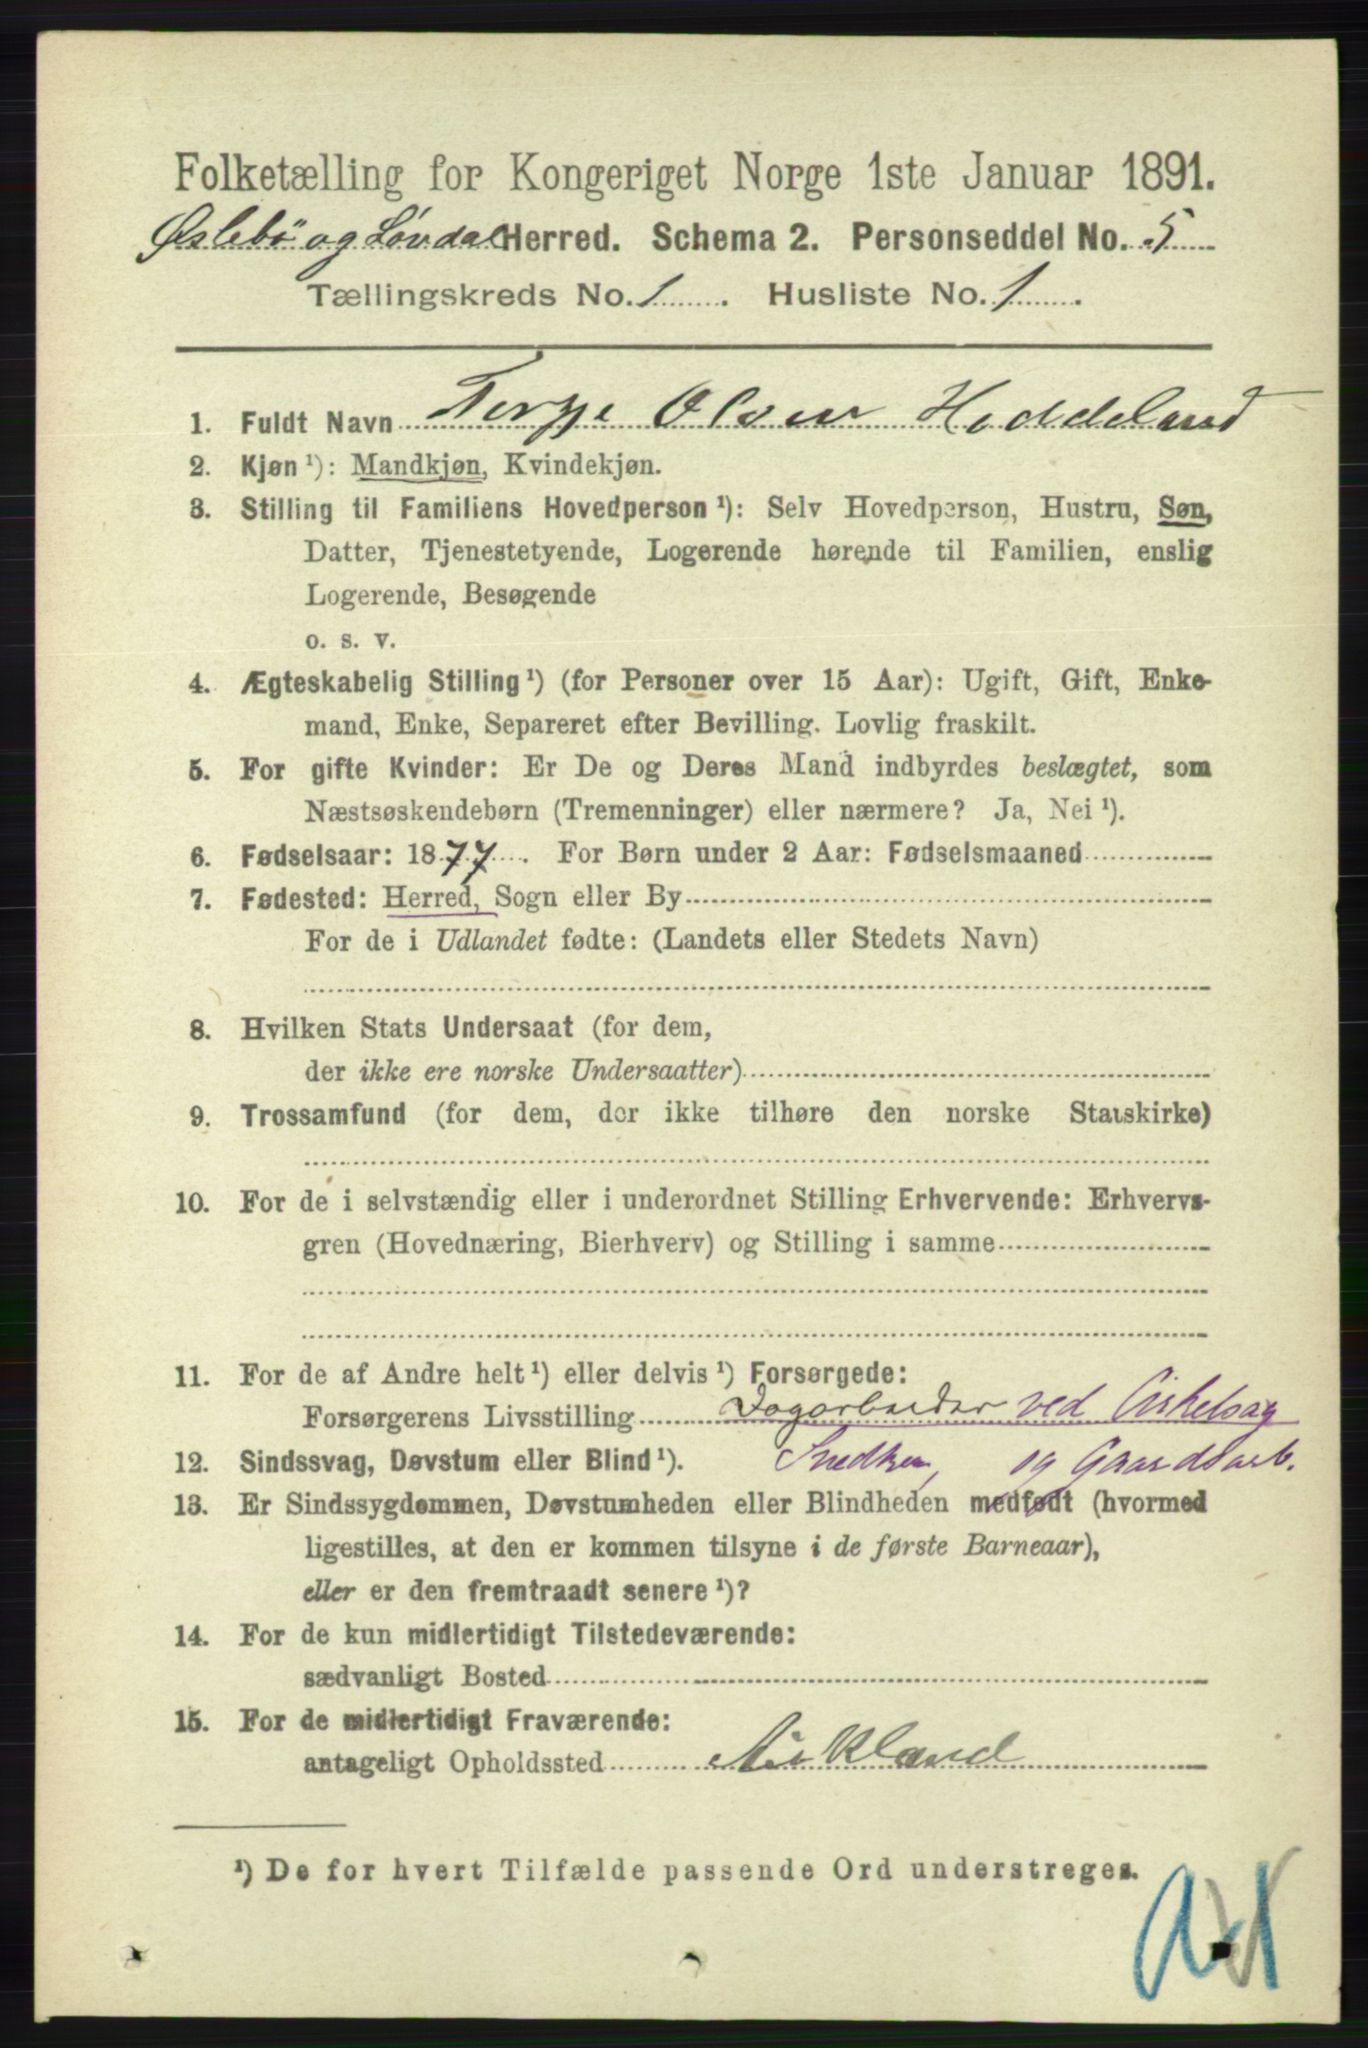 Folketælling for Kongeriget Norge 1ste Januar 1891.
Øslebö og Löudal Herred. Schema 2. Personseddel No. 5
Tællingskreds No. 1. Husliste No. 1.
1. Fuldt Navn Terje Olsen Heddeland
2. Kjøn ¹): Mandkjøn, Kvindekjøn.
3. Stilling til Familiens Hovedperson ¹): Selv Hovedperson, Hustru, Søn,
Datter, Tjenestetyende, Logerende hørende til Familien, enslig
Logerende, Besøgende
o. s. v.
4. Ægteskabelig Stilling ¹) (for Personer over 15 Aar): Ugift, Gift, Enke-
mand, Enke, Separeret efter Bevilling. Lovlig fraskilt.
5. For gifte Kvinder: Er De og Deres Mand indbyrdes beslægtet, som
Næstsøskendebørn (Tremenninger) eller nærmere? Ja, Nei ¹).
6. Fødselsaar: 1877. For Børn under 2 Aar: Fødselsmaaned
7. Fødested: Herred, Sogn eller By
For de i Udlandet fødte: (Landets eller Stedets Navn)
8. Hvilken Stats Undersaat (for dem,
der ikke ere norske Undersaatter)
9. Trossamfund (for dem, der ikke tilhøre den norske Statskirke)
10. For de i selvstændig eller i underordnet Stilling Erhvervende: Erhvervs-
gren (Hovednæring, Bierhverv) og Stilling i samme
11. For de af Andre helt ¹) eller delvis ¹) Forsørgede:
Forsørgerens Livsstilling Dagarbeider ved Cirkelsag
12. Sindssvag, Døvstum eller Blind ¹). Snedker, og Gaardsarb.
13. Er Sindssygdommen, Døvstumheden eller Blindheden medfødt (hvormed
ligestilles, at den er kommen tilsyne i de første Barneaar),
eller er den fremtraadt senere ¹)?
14. For de kun midlertidigt Tilstedeværende:
sædvanligt Bosted
15. For de midlertidigt Fraværende:
antageligt Opholdssted Aukland
¹) De for hvert Tilfælde passende Ord understreges.